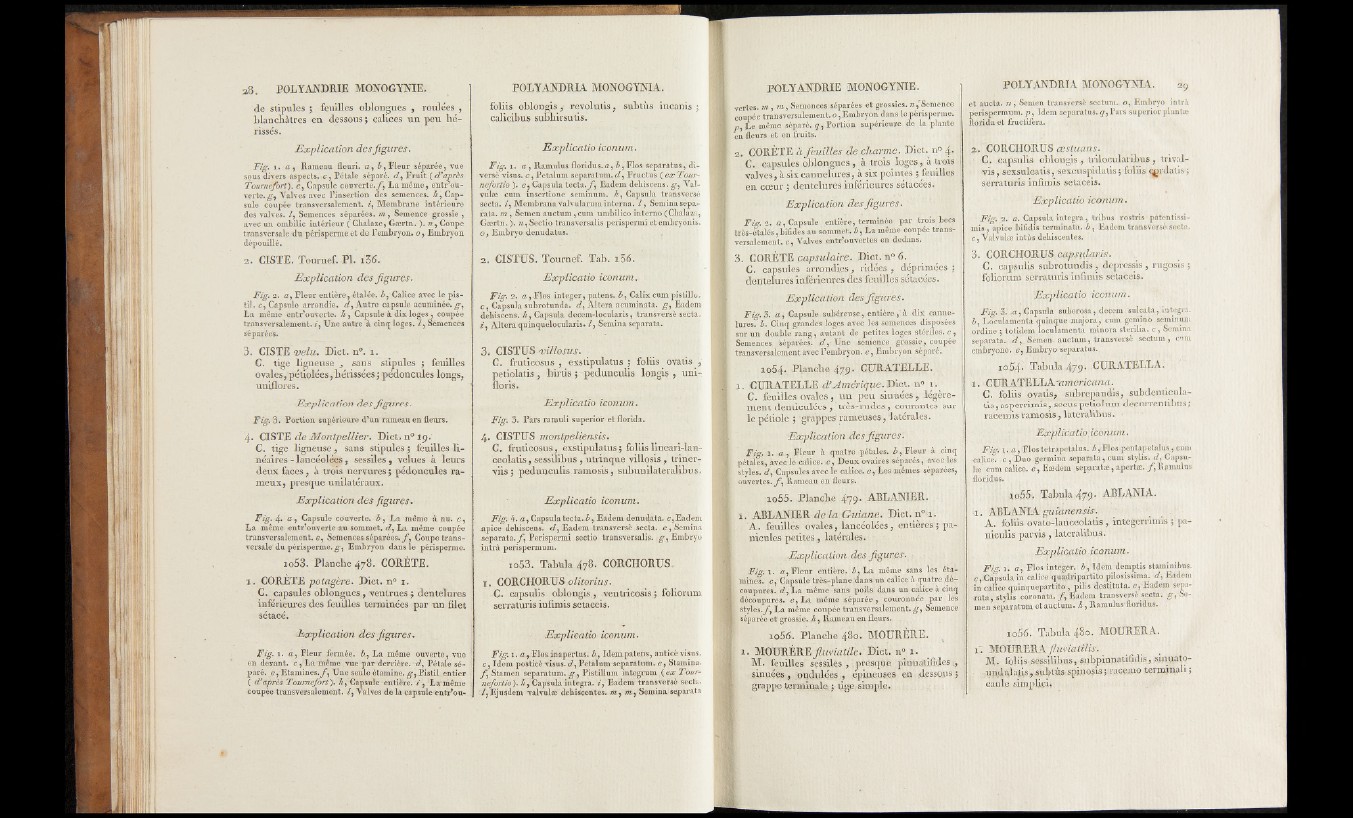 28. POLYANDRIE MONOGYNIE.
de stipules ; feuilles oblongues , roulées ,
blanchâtres en dessous ; calices un peu hé-
rissés.
Explication des figures.
Fig. 1. a, Rameau fleuri. a, b, Fleur séparée, vue
sous divers aspects. c, Pétale séparé. d, Fruit ( d'après
Tournefort). e, Capsule couverte. f, La même, entr'ou-
verte. g, Valves avec l'insertion des semences. h, Cap-
sule coupée transversalement. i, Membrane intérieure
des valves. l, Semences séparées. m, Semence grossie,
avec un ombilic intérieur ( Chalaze, Gærtn. ). n, Coupe
transversale du périsperme et de l'embryon. o, Embryon
dépouillé.
2. CISTE. Tournef. Pl. 136.
Explication des figures.
Fig. 2. a, Fleur entière, étalée. b, Calice avec le pis-
til. c, Capsule arrondie. d, Autre capsule acuminée. g,
La même entr'ouverte. h, Capsule à dix loges, coupée
transversalement. i, Une autre à cinq loges. l, Semences
séparées.
3. CISTE velu. Dict. n°. 1.
C. tige ligneuse , sans stipules ; feuilles
ovales, pétiolées, hérissées ; pédoncules longs,
uniflores.
Explication des figures.
Fig. 3. Portion supérieure d'un rameau en fleurs.
4. CISTE de Montpellier. Dict. n° 19.
C. tige ligneuse, sans stipules ; feuilles li-
néaires-lancéolées, sessiles, velues à leurs
deux faces, à trois nervures ; pédoncules ra-
meux, presque unilatéraux.
Explication des figures.
Fig. 4. a, Capsule couverte. b, La même à nu. c,
La même entr'ouverte au sommet. d, La même coupée
transversalement. e, Semences séparées. f, Coupe trans-
versale du périsperme. g, Embryon dans le périsperme.
1053. Planche 478. CORÈTE.
1. CORÈTE potagère. Dict. n° 1.
C. capsules oblongues, ventrues ; dentelures
inférieures des feuilles terminées par un filet
sétacé.
Explication des figures.
Fig. 1. a, Fleur fermée. b, La même ouverte, vue
en devant. c, La même vue par derrière. d, Pétale sé-
paré. e, Etamines. f, Une seule étamine. g, Pistil entier
( d'après Tournefort ). h, Capsule entière. i, La même
coupée transversalement. l, Valves de la capsule entr'ou-
POLYANDRIA MONOGYNIA.
foliis oblongis, revolutis, subtùs incanis ;
calicibus subhirsutis.
Explicatio iconum.
Fig. 1. a, Ramulus floridus. a, b, Flos separatus, di-
versè visus. c, Petalum separatum. d, Fructus ( ex Tour-
nefortio ). e, Capsula tecta. f, Eadem dehiscens. g, Val-
vulæ cum insertione seminum. h, Capsula transversè
secta. i, Membrana valvularum interna. l, Semina sepa-
rata. m, Semen auctum, cum umbilico interno (Chalaza,
Gærtn. ). n, Sectio transversalis perispermi et embryonis.
o, Embryo denudatus.
2. CISTUS. Tournef. Tab. 136.
Explicatio iconum.
Fig. 2. a, Flos integer, patens. b, Calix cum pistillo.
c, Capsula subrotunda. d, Altera acuminata. g, Eadem
dehiscens. h, Capsula decem-locularis, transversè secta.
i, Altera quinquelocularis. l, Semina separata.
3. CISTUS villosus.
C. fruticosus , exstipulatus ; foliis ovatis ,
petiolatis, hirtis ; pedunculis longis , uni-
floris.
Explicatio iconum.
Fig. 3. Pars ramuli superior et florida.
4. CISTUS montpeliensis.
C. fruticosus, exstipulatus ; foliis lineari-lan-
ceolatis, sessilibus, utrinque villosis, triner-
viis ; pedunculis ramosis, subunilateralibus.
Explicatio iconum.
Fig. 4. a, Capsula tecta. b, Eadem denudata. c, Eadem
apice dehiscens. d, Eadem transversè secta. e, Semina
separata. f, Perispermi sectio transversalis. g, Embryo
intrà perispermum.
1053. Tabula 478. CORCHORUS.
1. CORCHORUS olitorius.
C. capsulis oblongis, ventricosis ; foliorum
serraturis infimis setaceis.
Explicatio iconum.
Fig. 1. a, Flos inapertus. b, Idem patens, anticè visus.
c, Idem posticè visus. d, Petalum separatum. e, Stamina.
f, Stamen separatum. g, Pistillum integrum ( ex Tour-
nefortio ). h, Capsula integra. i, Eadem transversè secta.
l, Ejusdem valvulæ dehiscentes. m, m, Semina separata
POLYANDRIE MONOGYNIE.
vertes. m, m, Semences séparées et grossies. n, Semence
coupée transversalement. o, Embryon dans le périsperme.
p, Le même séparé. q, Portion supérieure de la plante
en fleurs et en fruits.
2. CORÈTE à feuilles de charme. Dict. n° 4.
C. capsules oblongues, à trois loges, à trois
valves, à six cannelures, à six pointes ; feuilles
en cœur ; dentelures inférieures sétacées.
Explication des figures.
Fig. 2. a, Capsule entière, terminée par trois becs
très-étalés, bifides au sommet. b, La même coupée trans-
versalement. c, Valves entr'ouvertes en dedans.
3. CORÈTE capsulaire. Dict. n° 6.
C. capsules arrondies, ridées, déprimées ;
dentelures inférieures des feuilles sétacées.
Explication des figures.
Fig. 3. a, Capsule subéreuse, entière, à dix canne-
lures. b, Cinq grandes loges avec les semences disposées
sur un double rang, autant de petites loges stériles. c,
Semences séparées. d, Une semence grossie, coupée
transversalement avec l'embryon. e, Embryon séparé.
1054. Planche 479. CURATELLE.
1. CURATELLE d'Amérique. Dict. n° 1.
C. feuilles ovales, un peu sinuées, légère-
ment denticulées, très-rudes, courantes sur
le pétiole ; grappes rameuses, latérales.
Explication des figures.
Fig. 1. a, Fleur à quatre pétales. b, Fleur à cinq
pétales, avec le calice. c, Deux ovaires séparés, avec les
styles. d, Capsules avec le calice. e, Les mêmes séparées,
ouvertes. f, Rameau en fleurs.
1055. Planche 479. ABLANIER.
1. ABLANIER de la Guiane. Dict. n° 1.
A. feuilles ovales, lancéolées, entières ; pa-
nicules petites, latérales.
Explication des figures.
Fig. 1. a, Fleur entière. b, La même sans les éta-
mines. c, Capsule très-plane dans un calice à quatre dé-
coupures. d, La même sans poils dans un calice à cinq
découpures. e, La même séparée, couronnée par les
styles. f, La même coupée transversalement. g, Semence
séparée et grossie. h, Rameau en fleurs.
1056. Planche 480. MOURÈRE.
1. MOURÈRE fluviatile. Dict. n° 1.
M. feuilles sessiles, presque pinnatifides,
sinuées, ondulées, épineuses en dessous ;
grappe terminale ; tige simple.
POLYANDRIA MONOGYNIA. 29
et aucta. n, Semen transversè sectum. o, Embryo intrà
perispermum. p, Idem separatus. q, Pars superior plantæ
florida et fructifera.
2. CORCHORUS æstuans.
C. capsulis oblongis, trilocularibus, trival-
vis, sexsulcatis, sexcuspidatis ; foliis cordatis ;
serraturis infimis setaceis.
Explicatio iconum.
Fig. 2. a. Capsula integra, tribus rostris patentissi-
mis, apice bifidis terminata. b, Eadem transversè secta.
c, Valvulæ intùs dehiscentes.
3. CORCHORUS capsularis.
C. capsulis subrotundis, depressis, rugosis ;
foliorum serraturis infimis setaceis.
Explicatio iconum.
Fig. 3. a, Capsula suberosa, decem sulcata, integra.
b, Loculamenta quinque majora, cum gemino seminum
ordine ; totidem loculamenta minora sterilia. c, Semina
separata. d, Semen auctum, transversè sectum, cum
embryone. e, Embryo separatus.
1054. Tabula 479. CURATELLA.
1. CURATELLA americana.
C. foliis ovatis, subrepandis, subdenticula-
tis, asperrimis, secus petiolum decurrentibus ;
racemis ramosis, lateralibus.
Explicatio iconum.
Fig. 1. a, Flos tetrapetalus. b, Flos pentapetalus, cum
calice. c, Duo germina separata, cum stylis. d, Capsu-
læ cum calice. e, Eædem separatæ, apertæ. f, Ramulus
floridus.
1055. Tabula 479. ABLANIA.
1. ABLANIA guianensis.
A. foliis ovato-lanceolatis, integerrimis ; pa-
niculis parvis, lateralibus.
Explicatio iconum.
Fig. 1. a, Flos integer. b, Idem demptis staminibus.
c, Capsula in calice quadripartito pilosissima. d, Eadem
in calice quinquepartito, pilis destituta. e, Eadem sepa-
rata, stylis coronata. f, Eadem transversè secta. g, Se-
men separatum et auctum. h, Ramulus floridus.
1056. Tabula 480. MOURERA.
1. MOURERA fluviatilis.
M. foliis sessilibus, subpinnatifidis, sinuato-
undulatis, subtùs spinosis ; racemo terminali ;
caule simplici.